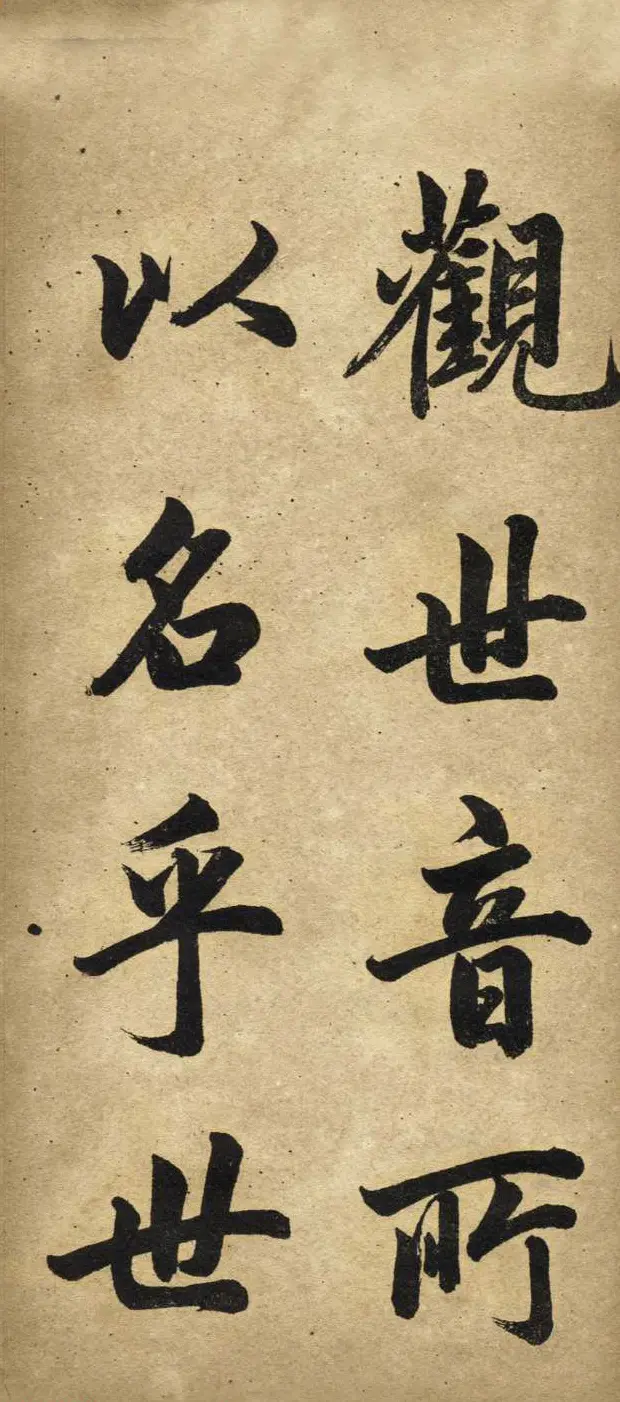 觀世音所
以名乎世